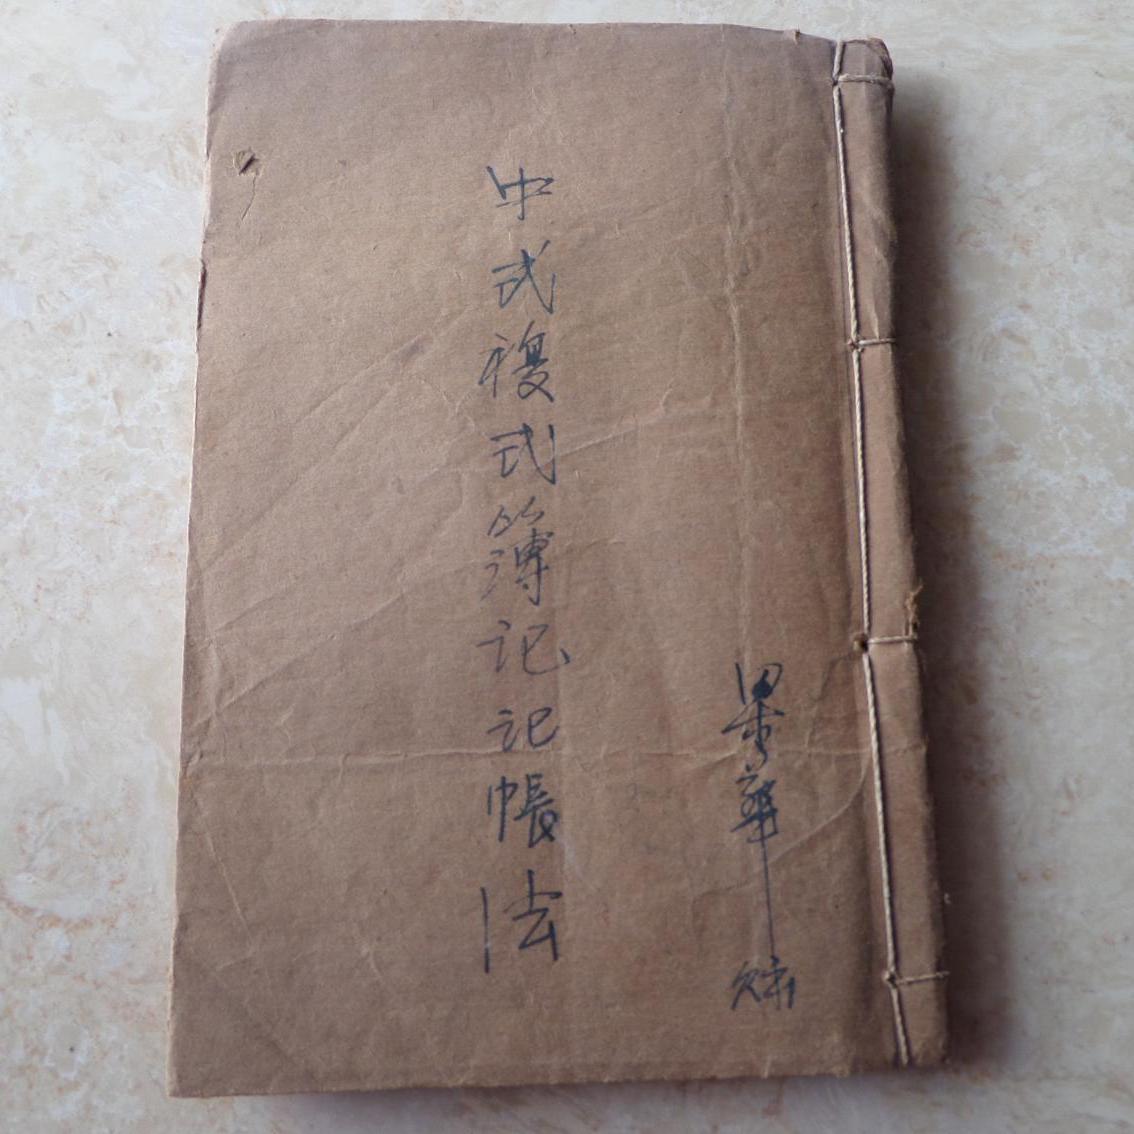 中式複式簿记记帳法
華